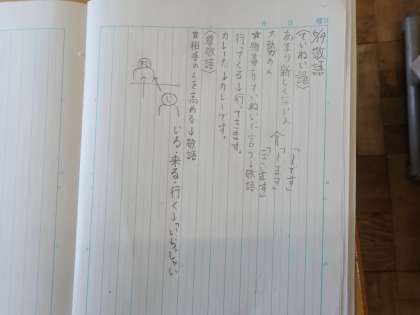 5/9 敬語
〈ていねい語〉
あまり親しくない人
大勢の人
「〜です」
「〜ます」
「ございます」
☆物事をていねいに言う↓敬語
行ってくる↓行ってきます。
カレーだ↓カレーです。
〈尊敬語〉
☆相手の人を高める↓敬語
いる・来る・行く↓「いらっしゃい